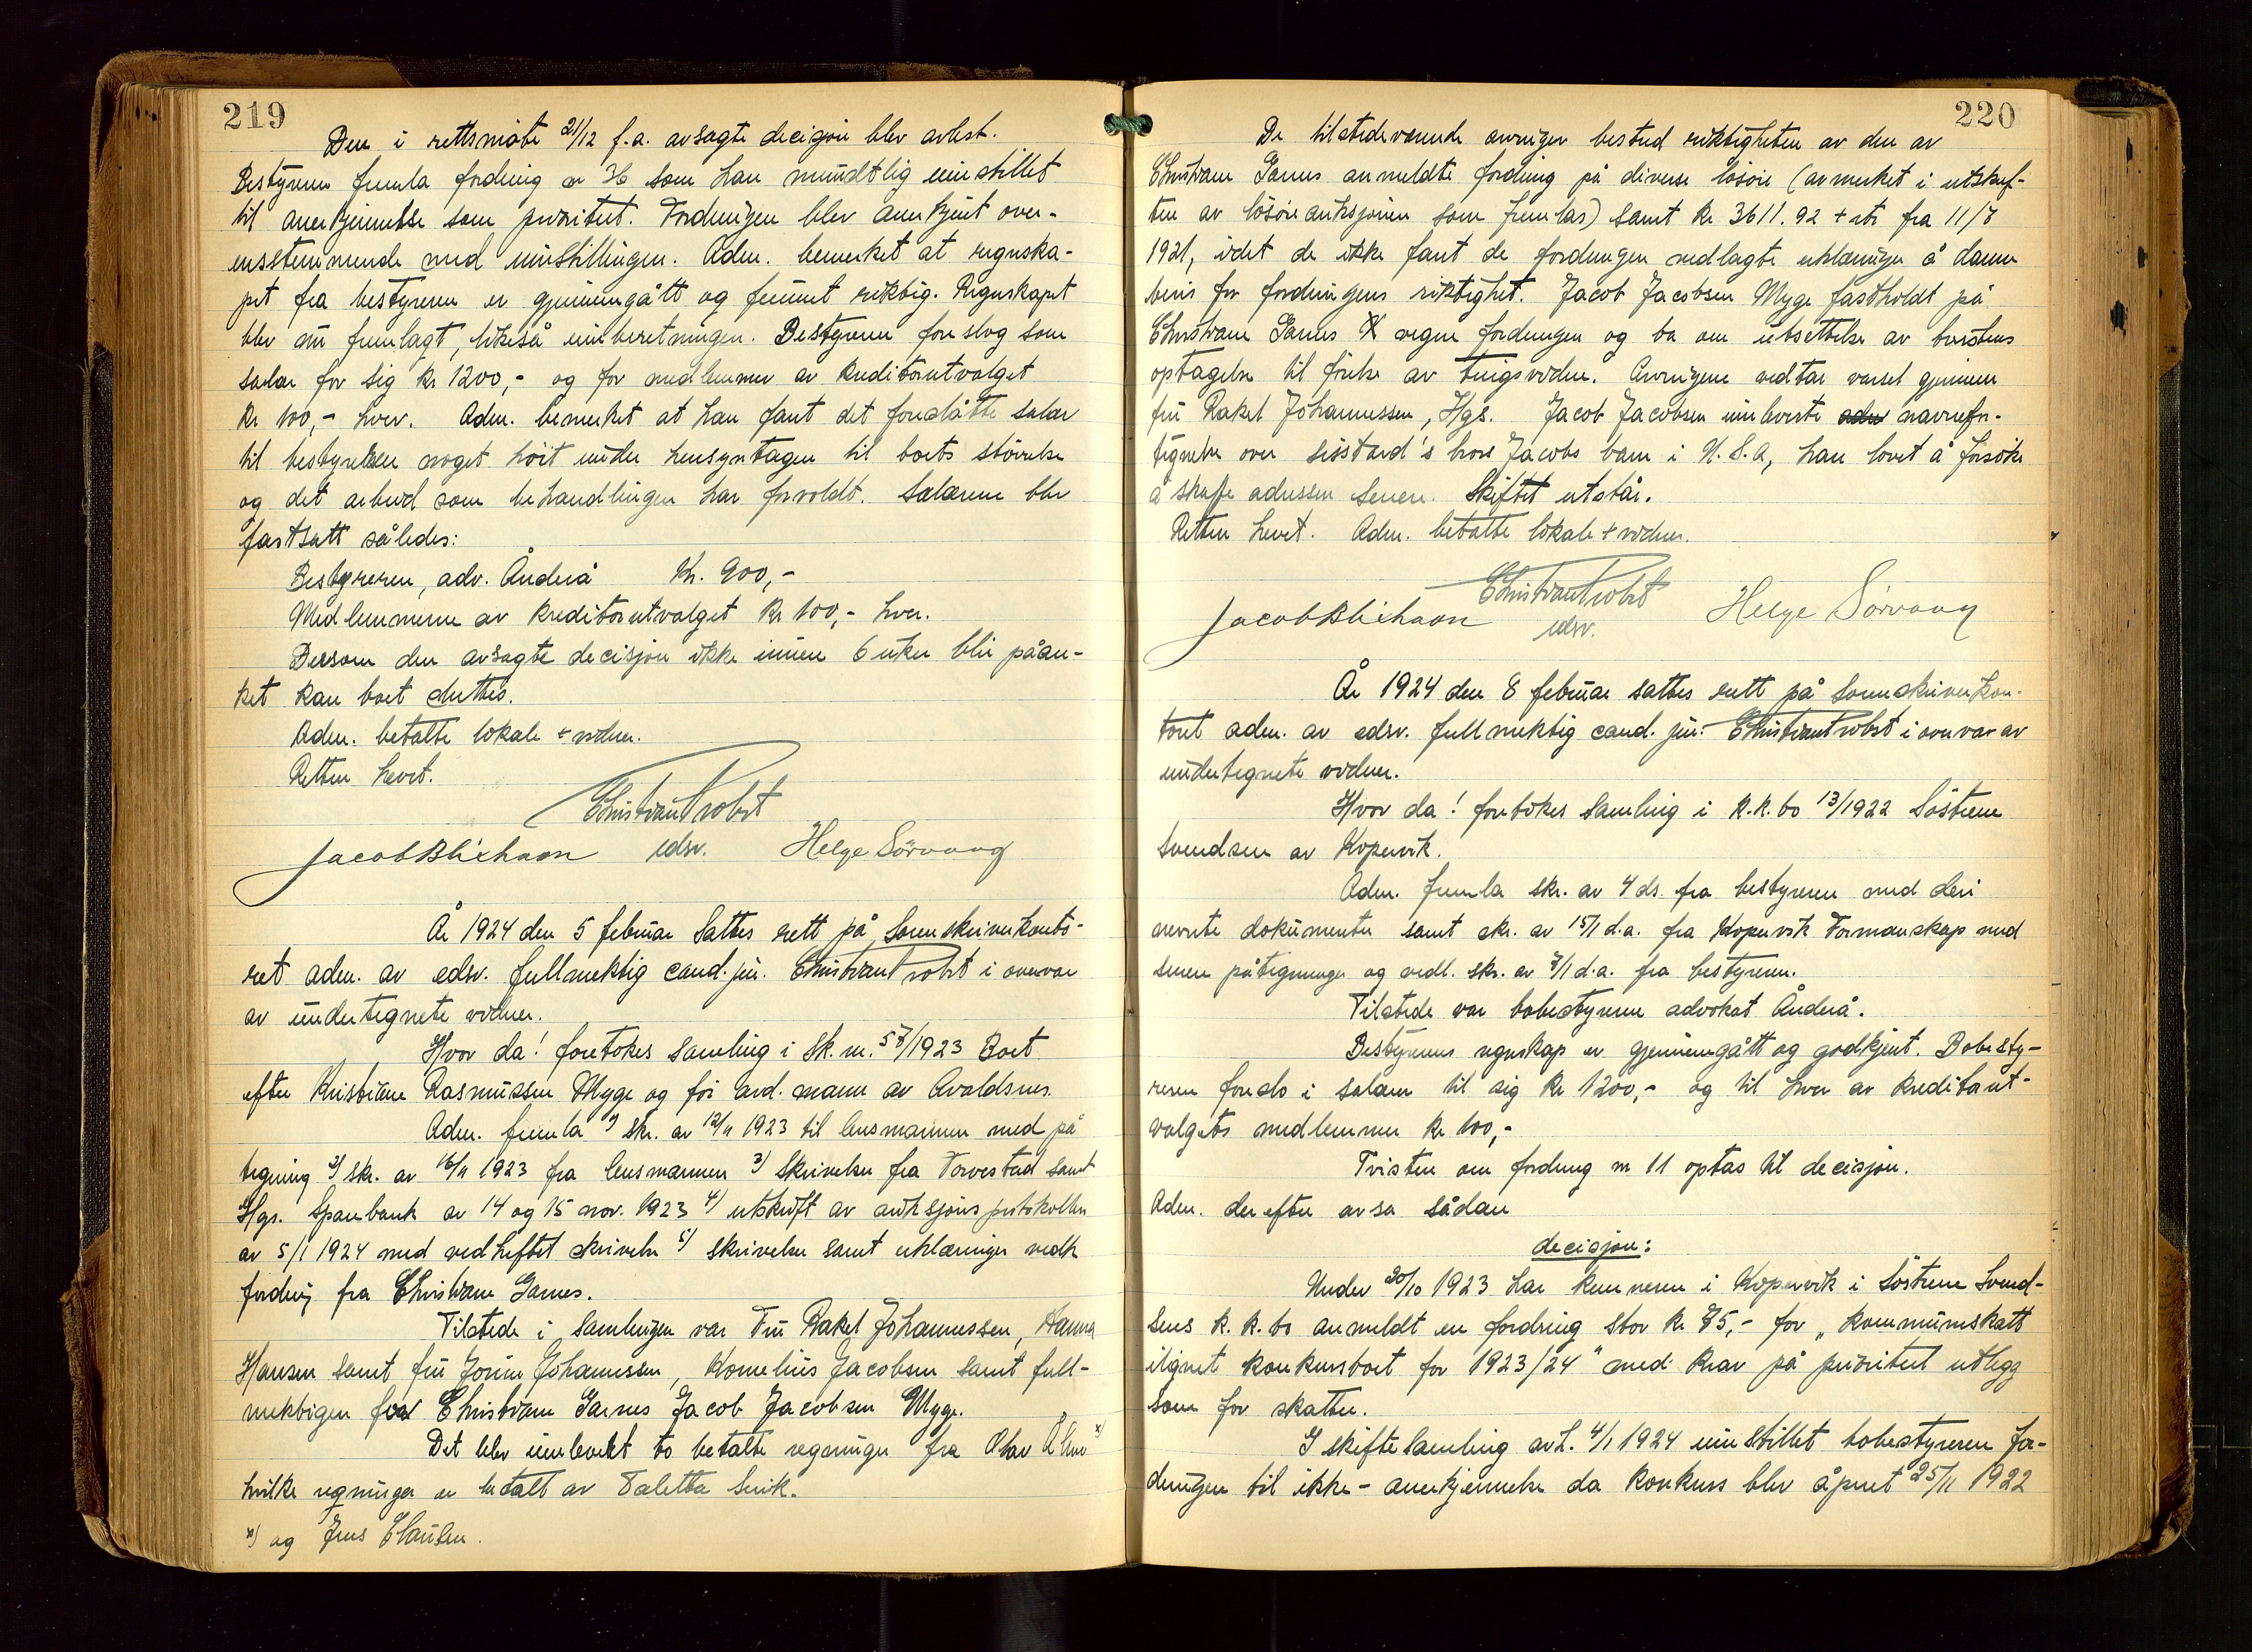 219
Den i rettsmøte 21/12 f.a. avsagte decisjon blev avlest.
Bestyreren fremla fordring nr 36 som han mundtlig innstillet
til anerkjennelse som prioritert. Fordringen blev anerkjent over-
ensstemmende med innstillingen. Adm. bemerket at regnska-
pet fra bestyreren er gjennemgått og funnet riktig. Regnskapet
blev nu fremlagt, likeså innberetningen. Bestyreren foreslog som
salær for sig kr 1200,- og for medlemmer av kreditorutvalget
kr 100,- hver. Adm. bemerket at han fant det foreslåtte salær
til bestyrelsen noget höit under hensyntagen til boets störrelse
og det arbeid som behandlingen har forvoldt. Salærene blev
fastsatt således:
Bestyreren, adv. Ånderå Kr. 900,-
Medlemmerne av kreditorutvalget kr 100,- hver.
Dersom den avsagte decisjon ikke innen 6 uker blir påan-
ket kan boet sluttes.
Adm. betalte lokale + vidner.
Retten hevet.
Christian Probst
JacobBlichaon edsv. Helge Sörvaag
År 1924 den 5 februar sattes rett på Sorenskriverkonto-
ret adm. av edsv. fullmektig cand. jur. Christian Probst i overvær
av undertegnete vidner.
Hvor da! foretokes samling i Sk. nr. 57/1923 Boet
efter Kristiane Rasmussen Myge og før avd. mann av Avaldsnes.
Adm. fremla 1) skr. av 12/11 1923 til lensmannen med på
tegning 2) skr. av 16/11 1923 fra lensmannen 3) Skrivelser fra Torvestad samt
Hgs. Sparebank av 14 og 15 nov. 1923 4) utskrift av auksjonsprotokollen
av 5/1 1924 med vedheftet skrivelse 5) skrivelse samt erklæringer vedk
fordring fra Christiane Garnes.
Tilstede i samlingen var Fru Rakel Johannessen, Hanna
Hansen samt fru Jorine Johannessen, Kornelius Jacobsen samt full-
mektigen for Christiane Garnes Jacob Jacobsen Myge.
Det blev innlevert to betalte regninger fra Olav x)
hvilke regninger er betalt av Taletta Sevik.
x) og Jens Clausen.
220
De tilstedeværende arvinger bestred riktigheten av den av
Christiane Garnes anmeldte fordring på diverse lösöre (avmerket i utskrif-
ten av lösöreauksjonen som fremlas) samt kr 3611.92 + rtr fra 11/7
1921, idet de ikke fant de fordringen vedlagte erklæringer å danne
bevis for fordringens riktighet. Jacob Jacobsen Myge fastholdt på
Christiane Garnes vegne fordringen og ba om utsettelse av tvistens
optagelse til förelse av tingsvidne. Arvingene vedtar varsel gjennem
fru Rakel Johannessen, Hgs. Jacob Jacobsen innleverte navnefor-
tegnelse over Jacobs barn i U.S.A, han lovet å forsöke
å skaffe adressen senere. Skiftet utstår.
Retten hevet. Adm. betalte lokale + vidner.
Christian Probst
JacobBlichaon edsv. Helge Sörvaag
År 1924 den 8 februar sattes rett på Sorenskriverkon-
toret adm. av edsv. fullmektig cand. jur. Christian Probst i overvær av
undertegnete vidner.
Hvor da! foretokes samling i k.k.bo 13/1922 Söstrene
Svendsen av Kopervik.
Adm. fremla skr. av 4 ds. fra bestyreren med deri
nevnte dokumenter samt skr. av 15/1 d.a. fra Kopervik Formanskap med
senere påtegninger og vedl. skr. av 7/1 d.a. fra bestyreren.
Tilstede var bobestyreren advokat Ånderå.
Bestyrerens regnskap er gjennemgått og godkjent. Bobesty-
reren foreslo i salær til sig kr 1200,- og til hver av kreditorut-
valgets medlemmer kr 100,-
Tvisten om fordring nr 11 optas til decisjon.
Adm. derefter avsa sådan
decisjon:
Under 20/10 1923 har kemneren i Kopervik i Söstrene Svend-
sens k.k.bo anmeldt en fordring stor kr 85,- for „kommuneskatt
ilignet konkursboet for 1923/24" med krav på prioritert utlegg
som for skatter.
I skiftesamling avh. 4/1 1924 innstillet bobestyreren for-
dringen til ikke-anerkjennelse da konkurs blev åpnet 25/11 1922